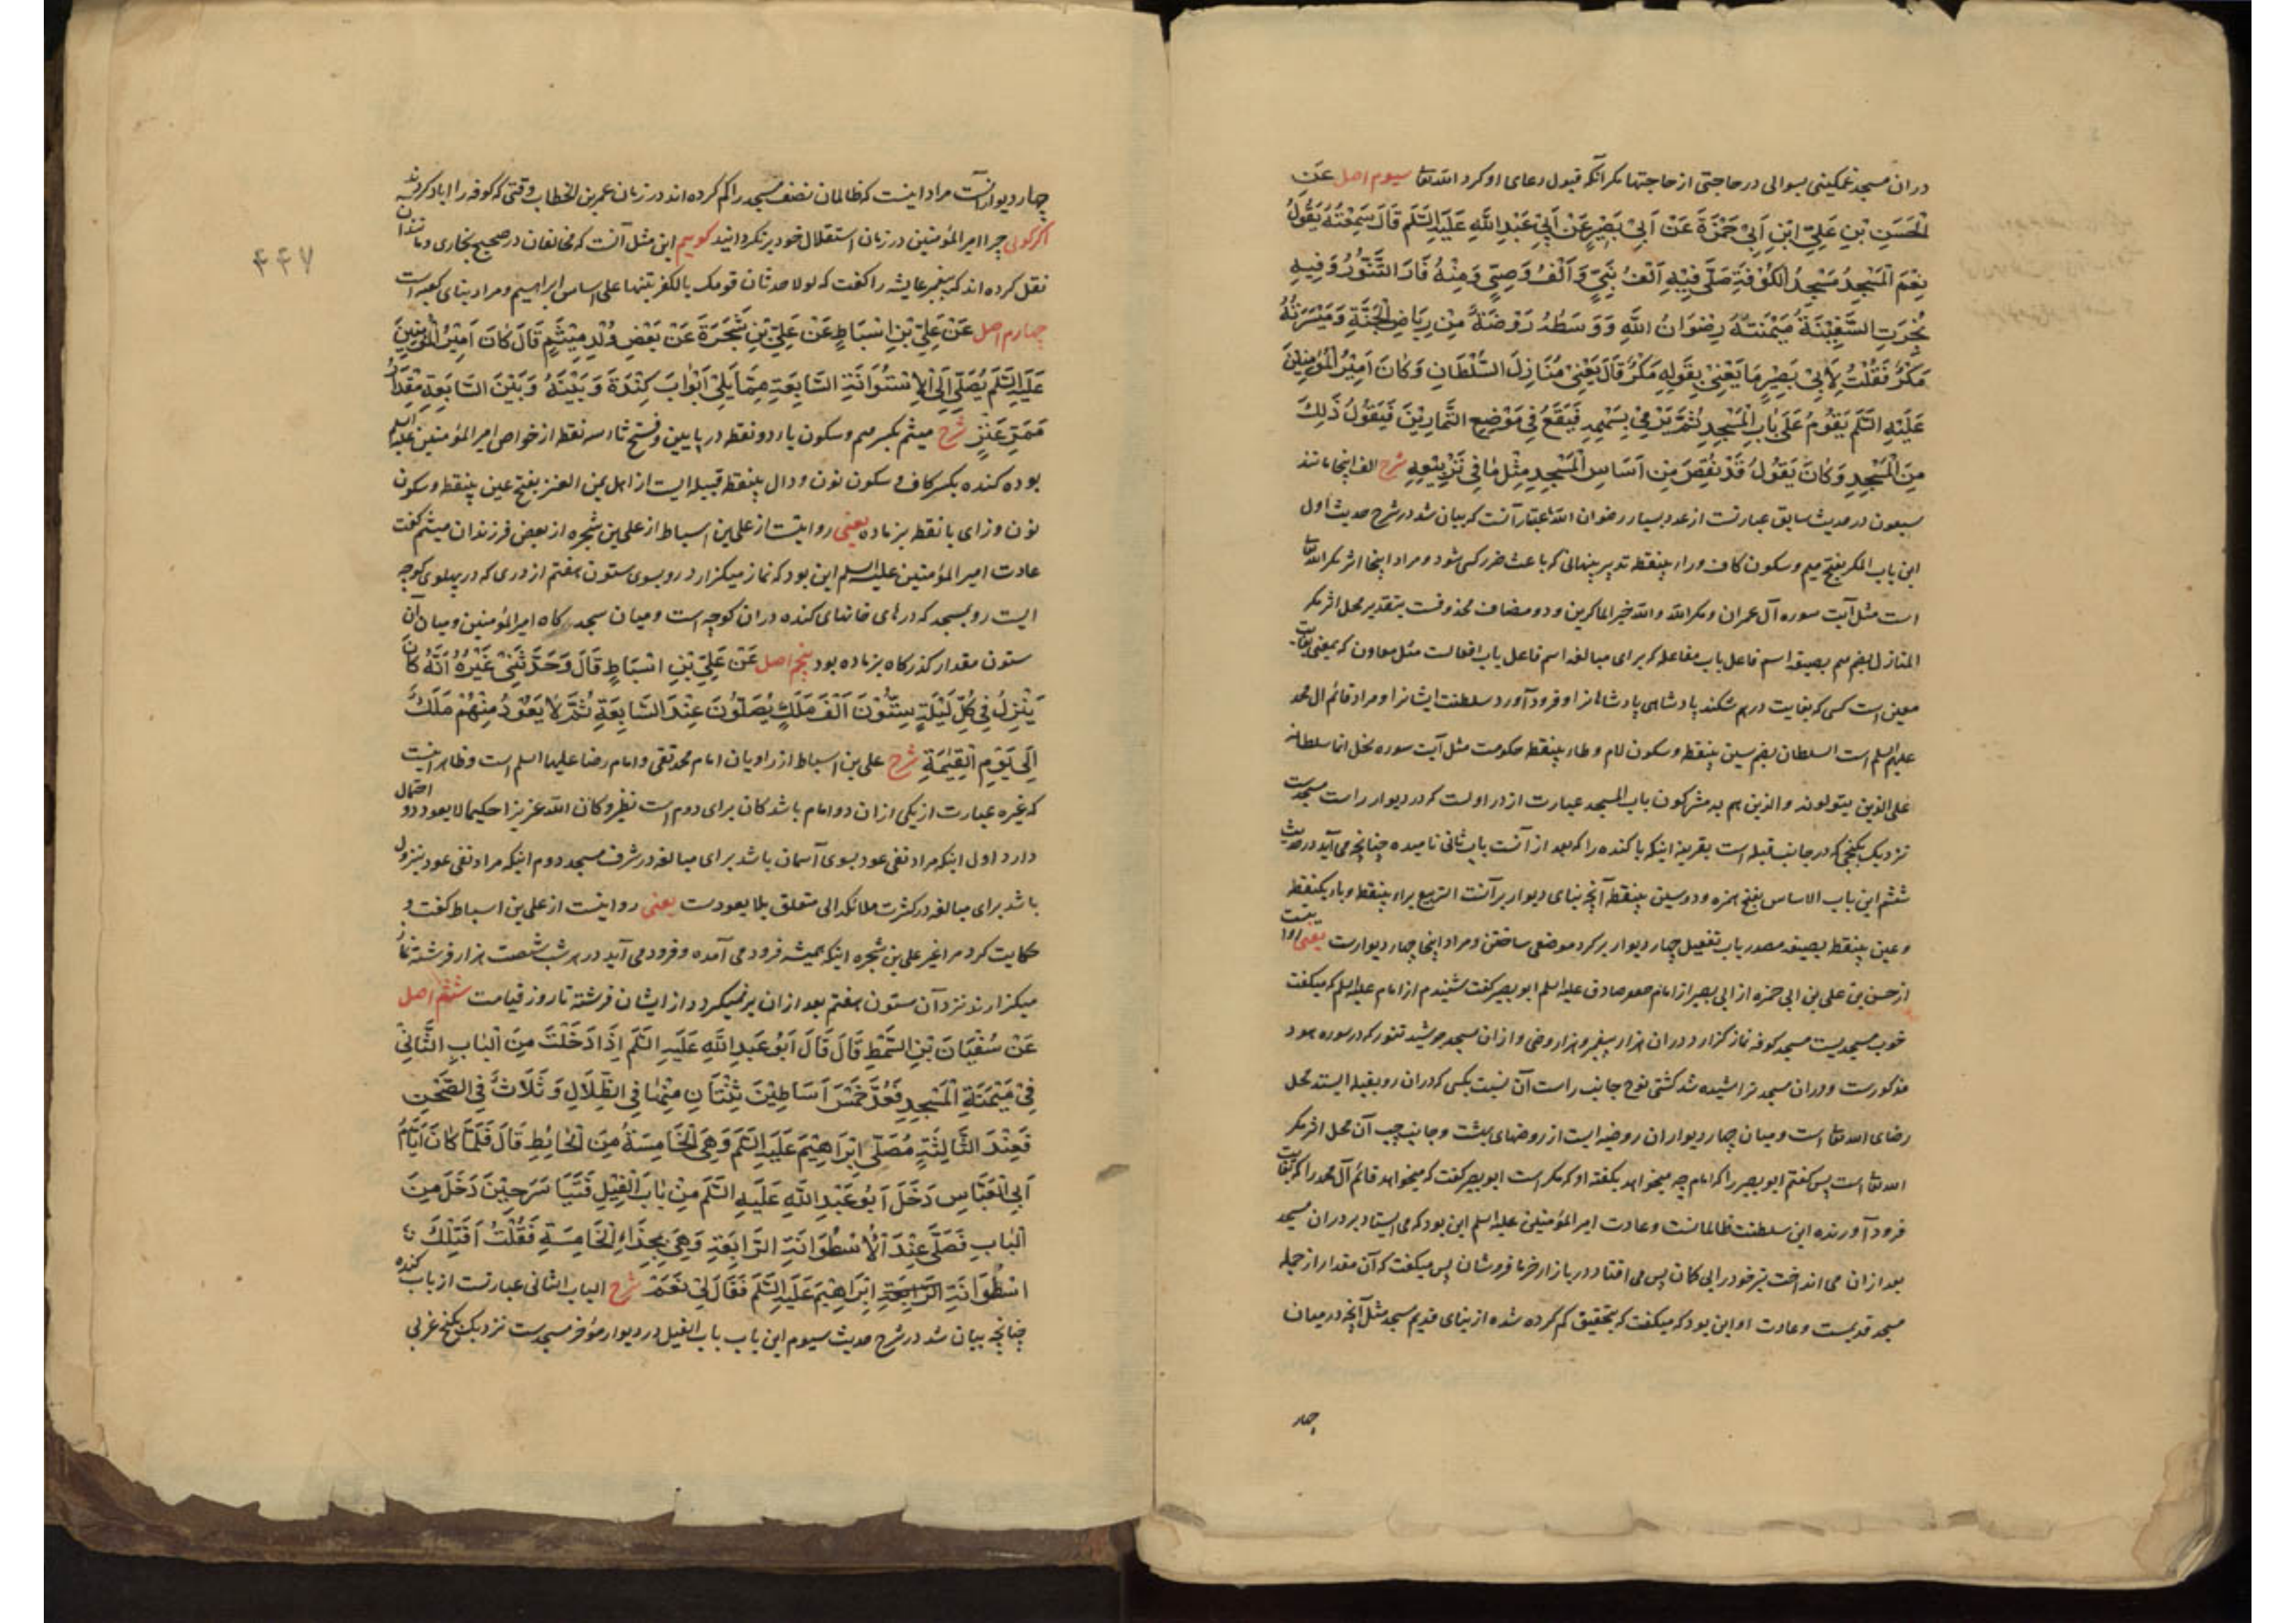 دران مسجد غمکینی بسوالی در حاجتی از حاجتها مکر آنکه قبول دعای او کرد الله تعا سیوم اصل عَنِ
الْحَسَنِ بْنِ عَلِيِّ ابْنِ اَبِيْ حَمْزَةَ عَنْ اَبِيْ بَصِيْرٍ عَنْ اَبِيْ عَبْدِ اللَّهِ عَلَيْهِ السَّلَم قَالَ سَمِعْتُهُ يَقُوْلُ
نِعْمَ الْمَسْجِدُ مَسْجِدُ الْكُوْفَةِ صَلَّى فِيْهِ اَلْفُ نَبِيٍّ وَ اَلْفُ وَصِيٍّ وَمِنْهُ فَارَ التَّنُّوْرُ وَفِيْهِ
نُجِرَتِ السَّفِيْنَةُ مَيْمَنَتُهُ رِضْوَانُ اللَّهِ وَ وَسَطُهُ رَوْضَةٌ مِنْ رِيَاضِ الْجَنَّةِ وَمَيْسَرَتُهُ
مَكْرٌ فَقُلْتُ لِأَبِيْ بَصِيْرٍ مَا يَعْنِيْ بِقَوْلِهِ مَكْرٌ قَالَ يَعْنِيْ مَنَازِلَ السُّلْطَانِ وَكَانَ اَمِيْرُ الْمُؤْمِنِيْنَ
عَلَيْهِ السَّلَم يَقُوْمُ عَلَى بَابِ الْمَسْجِدِ ثُمَّ يَرْمِيْ بِسَهْمِهِ فَيَقَعُ فِي مَوْضِعِ التَّمَّارِيْنَ فَيَقُوْلُ ذَلِكَ
مِنَ الْمَسْجِدِ وَكَانَ يَقُوْلُ قَدْ نُقِصَ مِنْ اَسَاسِ الْمَسْجِدِ مِثْلُ مَا فِي تَرْبِيْعِهِ شرح الف اینجا مانند
سبعون در حدیث سابق عبارتست از عدد بسیار رضوان الله عبارتست که بیان شد در شرح حدیث اول
این باب المکر بفتح میم و سکون کاف و راء بینقطه تدبیر پنهانی که باعث ضرر کسی شود و مراد اینجا اثر مکر الله تعا
است مثل آیت سوره آل عمران و مکر الله والله خیر الماکرین و دو مضاف محذوفست بتقدیر محل اثر مکر
المنازل بضم میم بصیغه اسم فاعل باب مفاعله که برای مبالغه اسم فاعل باب افعالست مثل معاون که بمعنی بغایت
معین است کسی که بغایت درهم شکند پادشاهی پادشاهانرا و فرود آورد سلطنت ایشانرا و مراد قائم ال محمد
علیهم السلم است السلطان بضم سین بینقطه و سکون لام و طاء بینقطه حکومت مثل آیت سوره نحل انما سلطانه
علی الذین یتولونه والذین هم به مشرکون باب المسجد عبارت از در اولست که در دیوار راست مسجدست
نزدیک بکنجی که در جانب قبله است بقرینه اینکه باب کنده را که بعد از آنست باب ثانی نامیده چنانچه می آید در حدیث
ششم این باب الاساس بفتح همزه و دو سین بینقطه آنچه بنای دیوار بر آنست التربیع براء بینقطه و باء یکنقطه
و عین بینقطه بصیغه مصدر باب تفعیل چهار دیوار بر کرد موضعی ساختن و مراد اینجا چهار دیوارست یعنی روایتست
از حسن بن علی بن ابی حمزه از ابی بصیر از امام جعفر صادق علیه السلم ابو بصیر کفت شنیدم از امام علیه السلم که میکفت
خوب مسجدیست مسجد کوفه نماز کزارد دران هزار پیغمبر و هزار وصی و ازان مسجد جوشید تنور که در سوره هود
مذکورست و دران مسجد تراشیده شد کشتی نوح جانب راست آن نسبت بکسی که دران رو بقبله ایستد محل
رضای الله تعا است و میان چهار دیوار ان روضه ایست از روضهای بهشت و جانب چپ آن محل اثر مکر
الله تعا است پس کفتم ابو بصیر را که امام چه میخواهد بکفته او که مکر است ابو بصیر کفت که میخواهد قائم آل محمد را که بغایت
فرود آورنده این سلطنت ظالمانست و عادت امیر المؤمنین علیه السلم این بود که می ایستاد بر در ان مسجد
بعد ازان می انداخت بتیر خود پس می افتاد در بازار خرما فروشان پس میکفت که آن مقدار از جمله
مسجد قدیمست و عادت او این بود که میکفت که بتحقیق کم کرده شده از بنای قدیم مسجد مثل آنچه در میان
چهار
چهار دیوار آنست مراد اینست که ظالمان نصف مسجد را کم کرده اند در زمان عمر بن الخطاب وقتی که کوفه را اباد کردند
اکر کوئی چرا امیر المؤمنین در زمان استقلال خود بر نکردانید کوییم این مثل آنست که مخالفان در صحیح بخاری و مانند آن
نقل کرده اند که پیغمبر عایشه را کفت که لولا حدثان قومک بالکفر بنیتها علی اساس ابراهیم و مراد بنای کعبه است
چهارم اصل عَنْ عَلِيِّ بْنِ اَسْبَاطٍ عَنْ عَلِيِّ بْنِ شَجَرَةَ عَنْ بَعْضِ وُلْدِ مِيْثَمٍ قَالَ كَانَ اَمِيْرُ الْمُؤْمِنِيْنَ
عَلَيْهِ السَّلَم يُصَلِّيْ اِلَى الْاُسْتُوَانَةِ السَّابِعَةِ مِمَّا يَلِيْ اَبْوَابَ كِنْدَةَ وَ بَيْنَهُ وَ بَيْنَ السَّابِعَةِ مِقْدَارُ
مَمَرِّ عَنْزٍ شرح میثم بکسر میم و سکون یاء دو نقطه در پایین و فتح ثاء سه نقطه از خواص امیر المؤمنین علیه السلم
بوده کنده بکسر کاف و سکون نون و دال بینقطه قبیله ایست از اهل یمن العنز بفتح عین بینقطه و سکون
نون و زای با نقطه بز ماده یعنی روایتست از علی بن اسباط از علی بن شجره از بعض فرزندان میثم کفت
عادت امیر المؤمنین علیه السلم این بود که نماز میکزارد رو بسوی ستون هفتم از دری که در پهلوی کوچه
ایست رو بمسجد که درهای خانهای کنده دران کوچه است و میان سجده کاه امیر المؤمنین و میان آن
ستون مقدار کذرکاه بز ماده بود پنجم اصل عَنْ عَلِيِّ بْنِ اَسْبَاطٍ قَالَ وَحَدَّثَنِيْ غَيْرُهُ اَنَّهُ كَانَ
يَنْزِلُ فِيْ كُلِّ لَيْلَةٍ سِتُّوْنَ اَلْفَ مَلَكٍ يُصَلُّوْنَ عِنْدَ السَّابِعَةِ ثُمَّ لَا يَعُوْدُ مِنْهُمْ مَلَكٌ
اِلَى يَوْمِ الْقِيٰمَةِ شرح علی بن اسباط از راویان امام محمد تقی و امام رضا علیهما السلم است و ظاهر اینست
که غیره عبارت از یکی ازان دو امام باشد کان برای دوم است نظیر و کان الله عزیزا حکیما لا یعود دو احتمال
دارد اول اینکه مراد نفی عود بسوی آسمان باشد برای مبالغه در شرف مسجد دوم اینکه مراد نفی عود بنزول
باشد برای مبالغه در کثرت ملائکه الی متعلق بلا یعودست یعنی روایتست از علی بن اسباط کفت و
حکایت کرد مرا غیر علی بن شجره اینکه همیشه فرود می آمده و فرود می آید در هر شب شصت هزار فرشته نماز
میکزارند نزد آن ستون هفتم بعد ازان بر نمیکردد از ایشان فرشته تا روز قیامت ششم اصل
عَنْ سُفْيَانَ بْنِ السِّمْطِ قَالَ قَالَ اَبُوْ عَبْدِ اللَّهِ عَلَيْهِ السَّلَم اِذَا دَخَلْتَ مِنَ الْبَابِ الثَّانِيْ
فِيْ مَيْمَنَةِ الْمَسْجِدِ فَعُدَّ خَمْسَ اَسَاطِيْنَ ثِنْتَانِ مِنْهَا فِي الظِّلَالِ وَ ثَلَاثٌ فِي الصَّحْنِ
فَعِنْدَ الثَّالِثَةِ مُصَلَّى اِبْرَاهِيْمَ عَلَيْهِ السَّلَم وَهِيَ الْخَامِسَةُ مِنَ الْحَائِطِ قَالَ فَلَمَّا كَانَ اَيَّامُ
اَبِي الْعَبَّاسِ دَخَلَ اَبُوْ عَبْدِ اللَّهِ عَلَيْهِ السَّلَم مِنْ بَابِ الْفِيْلِ فَتَيَاسَرَ حِيْنَ دَخَلَ مِنَ
الْبَابِ فَصَلَّى عِنْدَ الْاُسْطُوَانَةِ الرَّابِعَةِ وَهِيَ بِحِذَاءِ الْخَامِسَةِ فَقُلْتُ اَفَتِلْكَ
اُسْطُوَانَةُ اِبْرَاهِيْمَ عَلَيْهِ السَّلَم فَقَالَ لِيْ نَعَمْ شرح الباب الثانی عبارتست از باب کنده
چنانچه بیان شد در شرح حدیث سیوم این باب باب الفیل در دیوار مؤخر مسجدست نزدیک بکنج غربی
۴۴۷